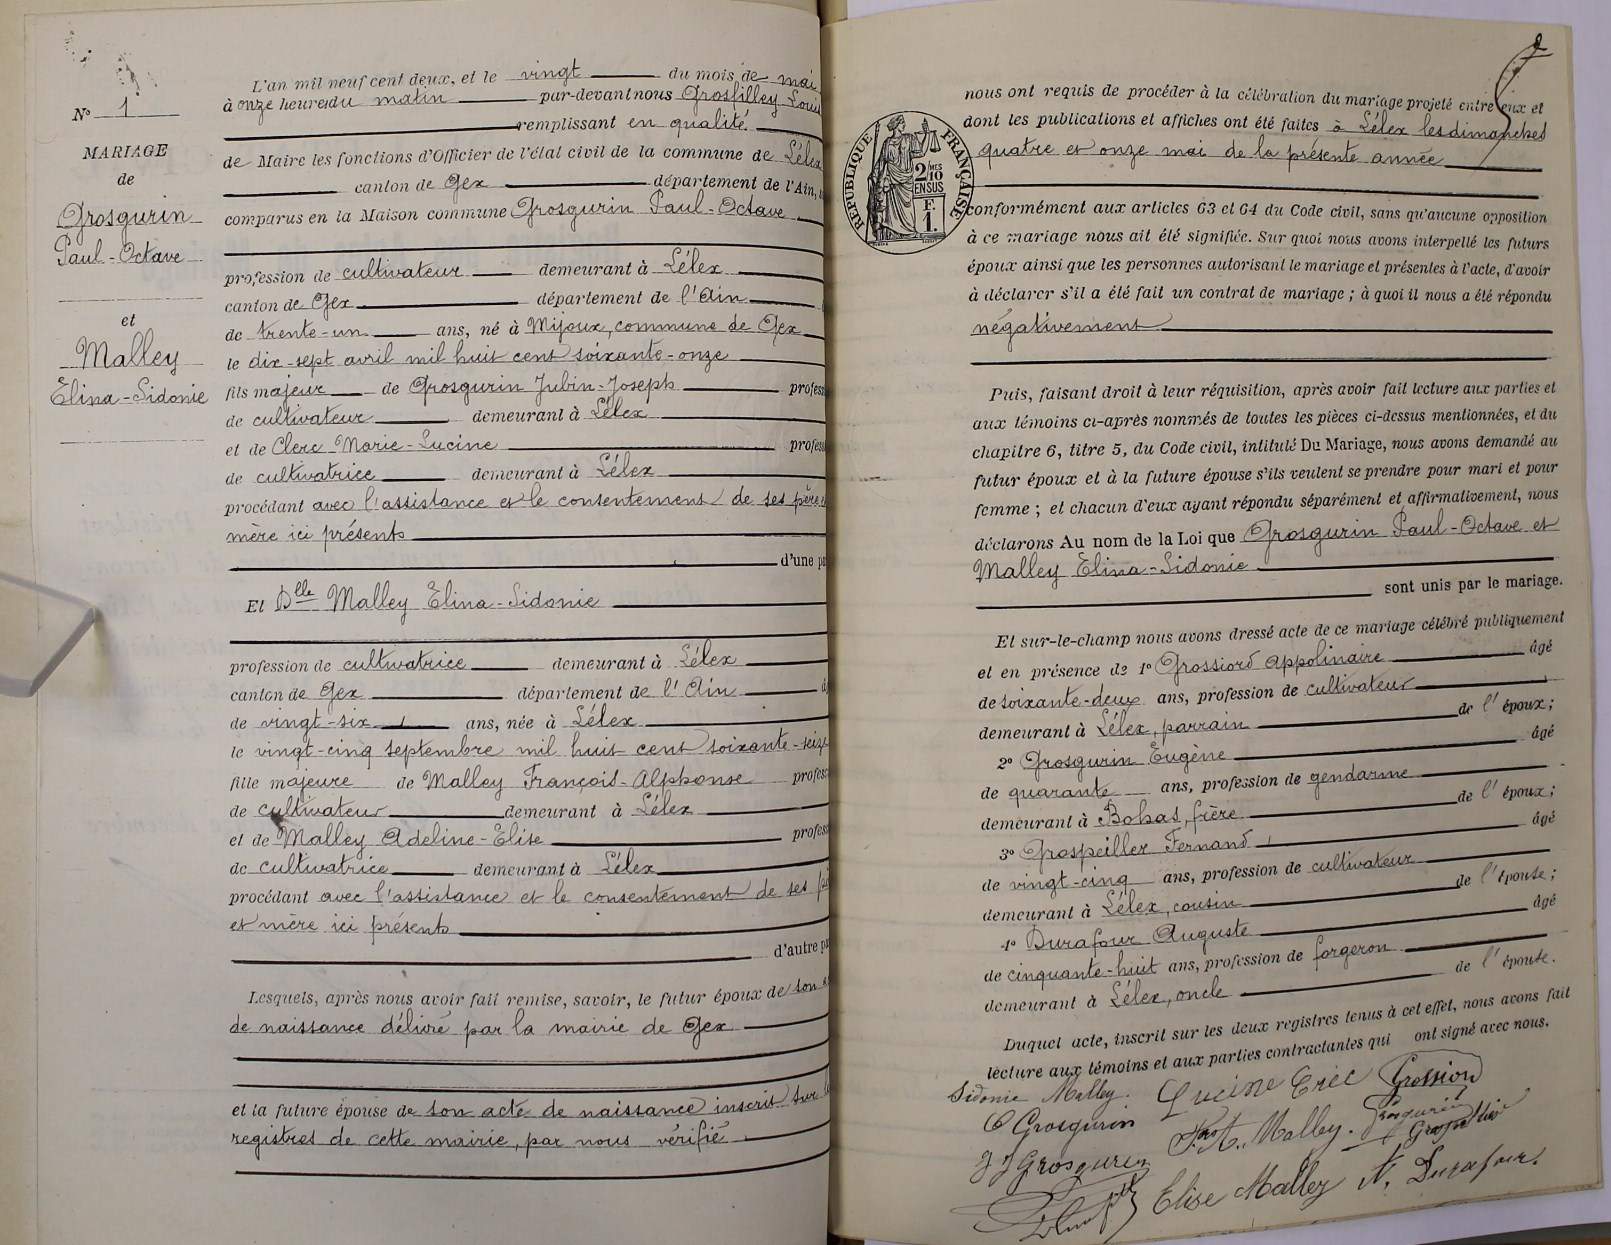 N° 1
MARIAGE
de
Grosgurin
Paul-Octave
et
Malley
Elina-Sidonie
L'an mil neuf cent deux, et le vingt du mois de mai
à onze heures du matin par-devant nous Grosfilley Louis
remplissant en qualité
de Maire les fonctions d'Officier de l'état civil de la commune de Lélex
canton de Gex département de l'Ain,
comparus en la Maison commune Grosgurin Paul-Octave
profession de cultivateur demeurant à Lélex
canton de Gex département de l'Ain
de trente-un ans, né à Mijoux, commune de Gex
le dix-sept avril mil huit cent soixante-onze
fils majeur de Grosgurin Jubin-Joseph profess
de cultivateur demeurant à Lélex
et de Clerc Marie-Lucine profess
de cultivatrice demeurant à Lélex
procédant avec l'assistance et le consentement de ses père
mère ici présents
d'une pa
Et Dlle Malley Elina-Sidonie
profession de cultivatrice demeurant à Lélex
canton de Gex département de l'Ain
de vingt-six ans, née à Lélex
le vingt-cinq septembre mil huit cent soixante-seize
fille majeure de Malley François-Alphonse profess
de cultivateur demeurant à Lélex
et de Malley Adeline-Elise profess
de cultivatrice demeurant à Lélex
procédant avec l'assistance et le consentement de ses pè
et mère ici présents
d'autre pa
Lesquels, après nous avoir fait remise, savoir, le futur époux de son
de naissance délivré par la mairie de Gex
et la future épouse de son acte de naissance inscrit sur
registres de cette mairie, par nous vérifié
REPUBLIQUE FRANÇAISE
2/10 MES
EN SUS
F.
1.
nous ont requis de procéder à la célébration du mariage projeté entre eux et
dont les publications et affiches ont été faites à Lélex les dimanches
quatre et onze mai de la présente année
conformément aux articles 63 et 64 du Code civil, sans qu'aucune opposition
à ce mariage nous ait été signifiée. Sur quoi nous avons interpellé les futurs
époux ainsi que les personnes autorisant le mariage et présentes à l'acte, d'avoir
à déclarer s'il a été fait un contrat de mariage ; à quoi il nous a été répondu
négativement
Puis, faisant droit à leur réquisition, après avoir fait lecture aux parties et
aux témoins ci-après nommés de toutes les pièces ci-dessus mentionnées, et du
chapitre 6, titre 5, du Code civil, intitulé Du Mariage, nous avons demandé au
futur époux et à la future épouse s'ils veulent se prendre pour mari et pour
femme ; et chacun d'eux ayant répondu séparément et affirmativement, nous
déclarons Au nom de la Loi que Grosgurin Paul-Octave et
Malley Elina-Sidonie
sont unis par le mariage.
Et sur-le-champ nous avons dressé acte de ce mariage célébré publiquement
et en présence de 1° Grossiord Appolinaire âgé
de soixante-deux ans, profession de cultivateur
demeurant à Lélex, parrain de l'époux;
2° Grosgurin Eugène âgé
de quarante ans, profession de gendarme
demeurant à Bohas, frère de l'époux;
3° Grospeiller Fernand âgé
de vingt-cinq ans, profession de cultivateur
demeurant à Lélex, cousin de l'épouse;
4° Durafour Auguste âgé
de cinquante-huit ans, profession de forgeron
demeurant à Lélex, oncle de l'épouse.
Duquel acte, inscrit sur les deux registres tenus à cet effet, nous avons fait
lecture aux témoins et aux parties contractantes qui ont signé avec nous.
Sidonie Malley. Lucine Grossiord
O Grosgurin A. Malley. Grosgurin
J J Grosgurin
Elise Malley A. Durafour.